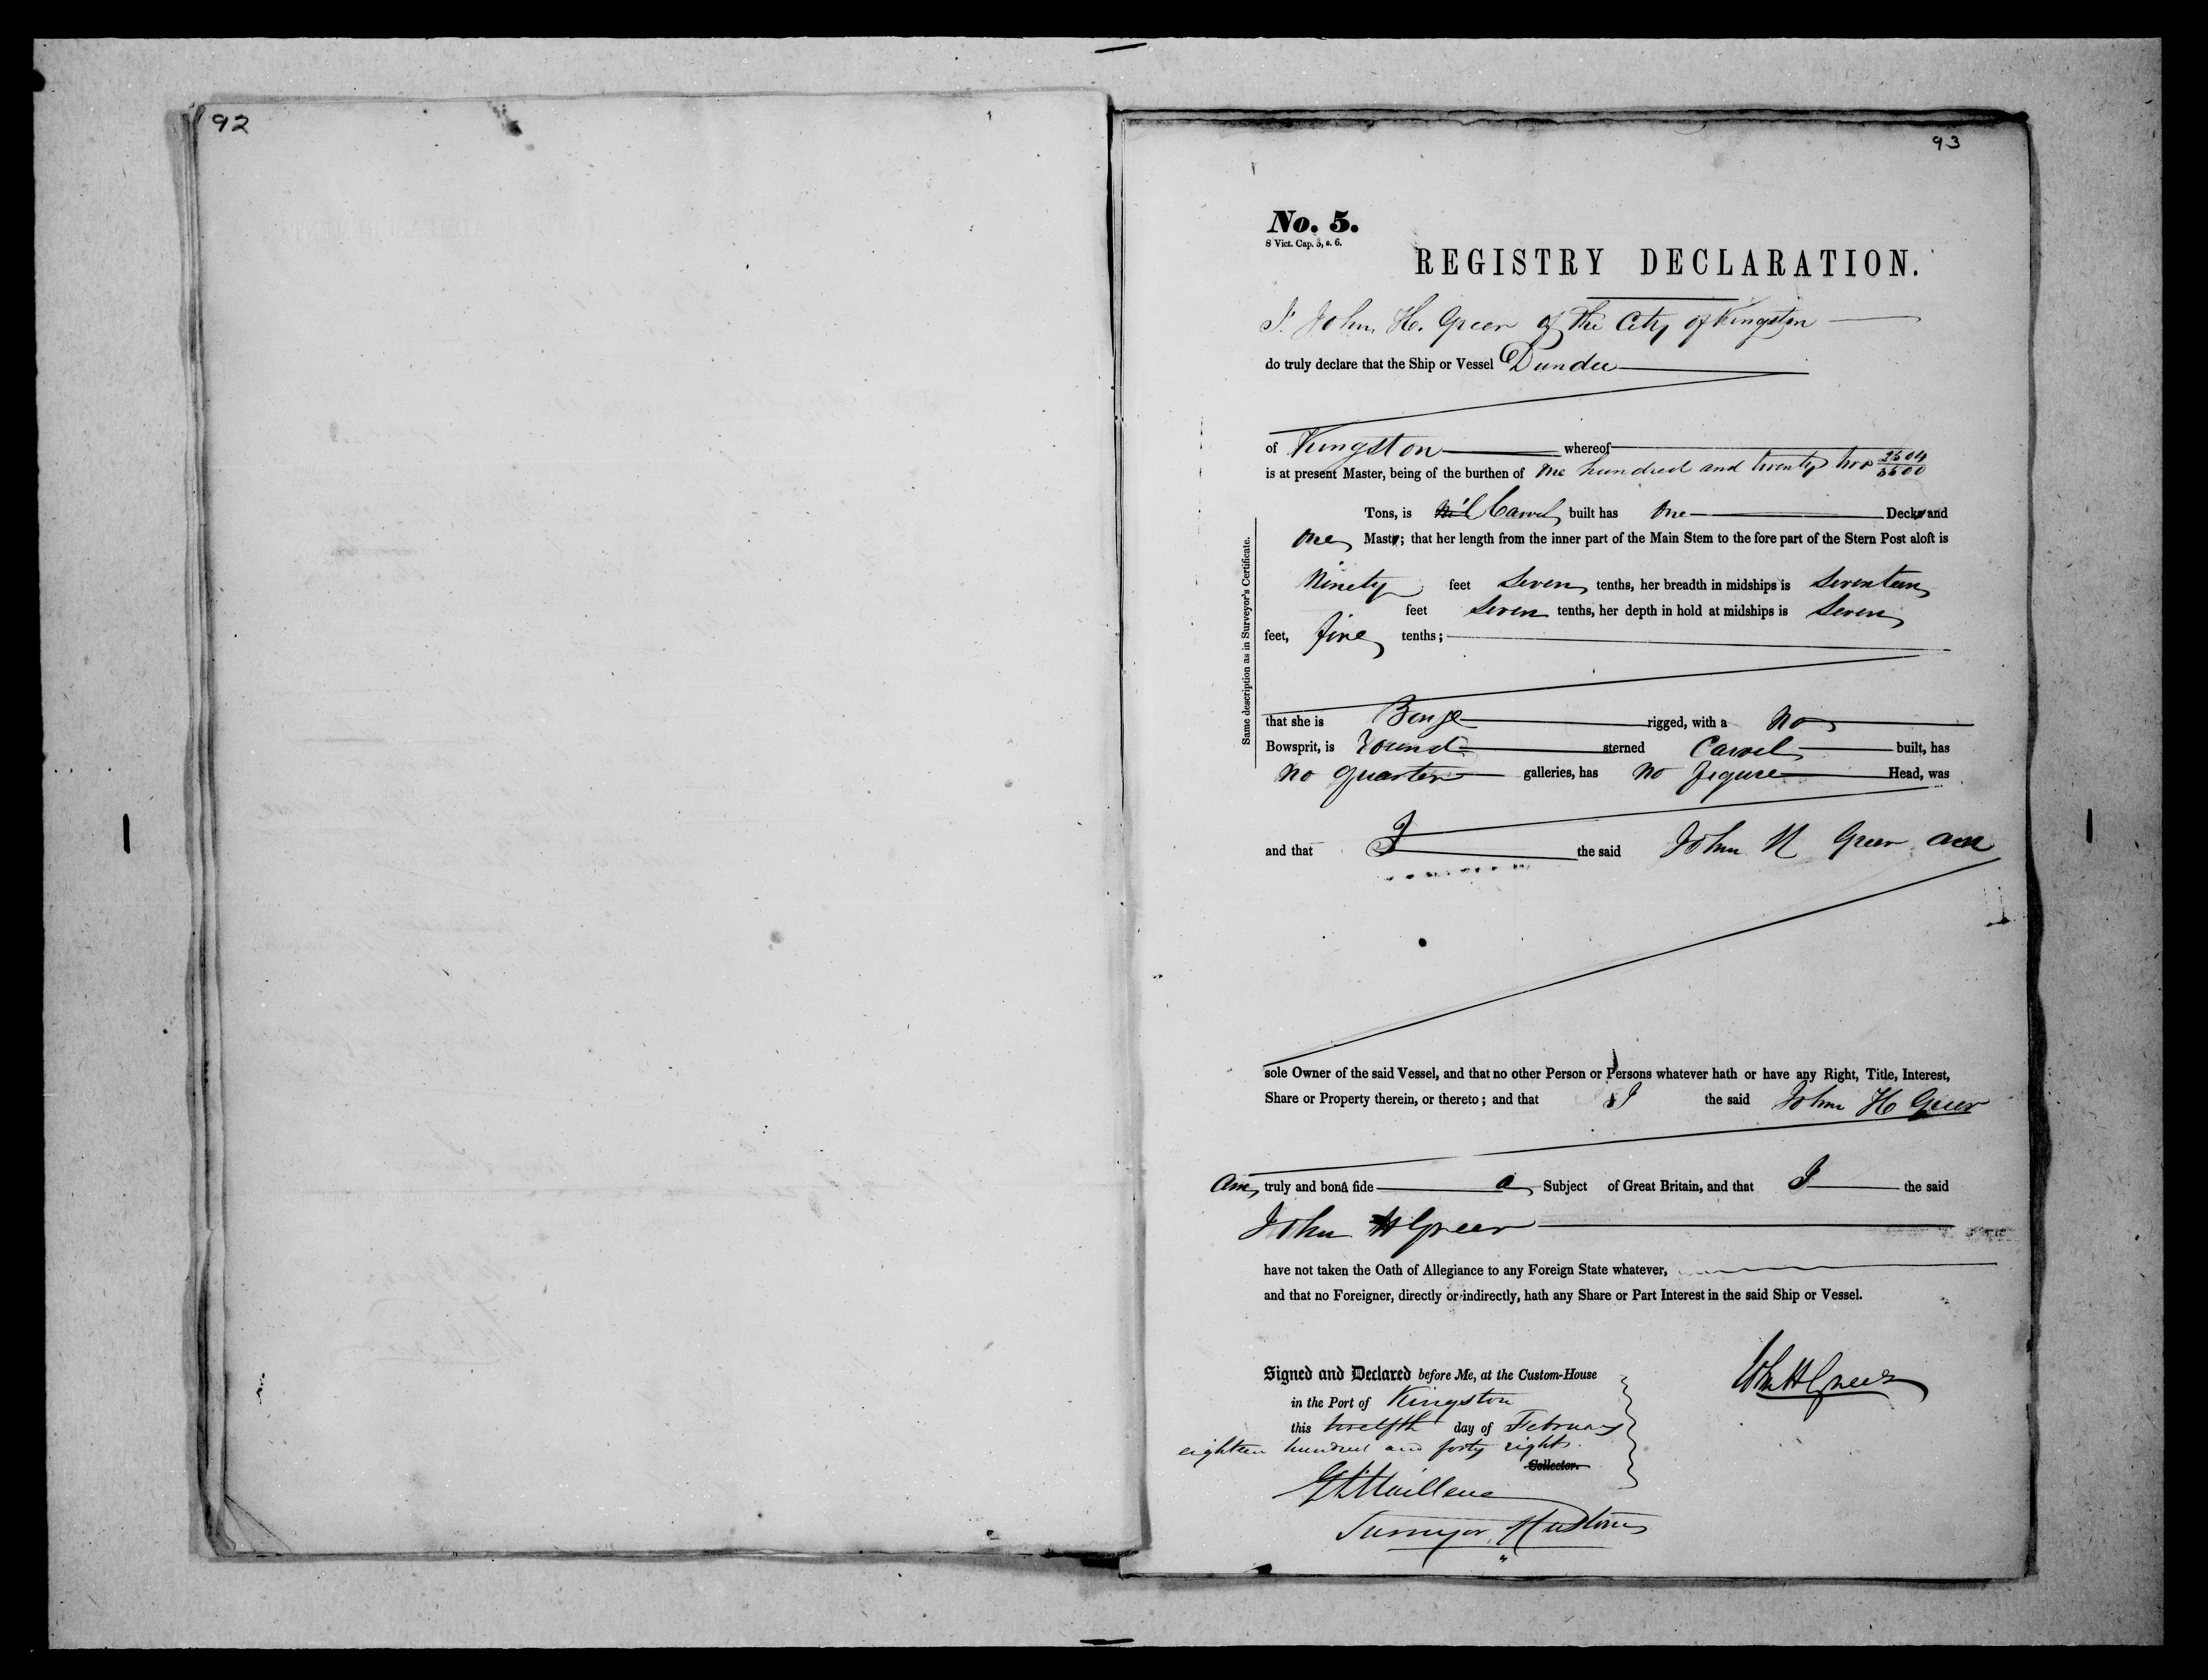 92
93
No. 5.
8 Vict. Cap. 5, s. 6.
REGISTRY DECLARATION.
I. John H. Greer of the City of Kingston
do truly declare that the Ship or Vessel Dundee
of Kingston whereof
is at present Master, being of the burthen of One hundred and twenty two 2504/3500
Tons, is Carvel built has One Decks and
One Masts; that her length from the inner part of the Main Stem to the fore part of the Stern Post aloft is
Ninety feet Seven tenths, her breadth in midships is Seventeen
feet Seven tenths, her depth in hold at midships is Seven
feet, five tenths;
Same description as in Surveyor's Certificate.
that she is Barge rigged, with a No
Bowsprit, is round sterned Carvel built, has
no quarter galleries, has no figure Head, was
and that I the said John H Greer am
sole Owner of the said Vessel, and that no other Person or Persons whatever hath or have any Right, Title, Interest,
Share or Property therein, or thereto; and that I the said John H Greer
Am truly and bonâ fide a Subject of Great Britain, and that I the said
John H Greer
have not taken the Oath of Allegiance to any Foreign State whatever,
and that no Foreigner, directly or indirectly, hath any Share or Part Interest in the said Ship or Vessel.
Signed and Declared before Me, at the Custom-House
in the Port of Kingston
this twelfth day of February
eighteen hundred and forty eight.
Collector.
John H Greer
Surveyor Customs